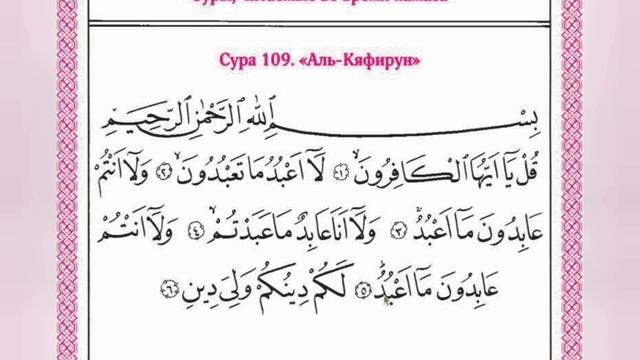 Сура 109. «Аль-Кяфирун»
بِسْمِ اللهِ الرَّحْمٰنِ الرَّحِيمِ
قُلْ يَٓا اَيُّهَا الْكَافِرُونَۙ ﴿١﴾ لَٓا اَعْبُدُ مَا تَعْبُدُونَۙ ﴿٢﴾ وَلَٓا اَنْتُمْ
عَابِدُونَ مَٓا اَعْبُدُۚ ﴿٣﴾ وَلَٓا اَنَا عَابِدٌ مَا عَبَدْتُمْۙ ﴿٤﴾ وَلَٓا اَنْتُمْ
عَابِدُونَ مَٓا اَعْبُدُۜ ﴿٥﴾ لَكُمْ دِينُكُمْ وَلِيَ دِينِ ﴿٦﴾